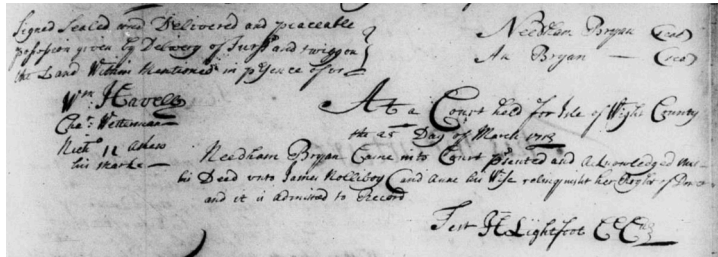 Signed Sealed and Delivered and peaceable
possession given by Delivery of Turff and twigg on
the Land Within Mentioned in presence of us
Needham Bryan Seal
An Bryan — Seal
Wm Havell
Cha: Westerman
Nich°
his Marke
At a Court held for Isle of Wight County
the 25 Day of March 1713
Needham Bryan Came into Court presented and Acknowledged
his Deed unto James Holliboy and Anne his Wife relinquisht her Right of
and it is admited to Record
Test H Lightfoot Cl Cur